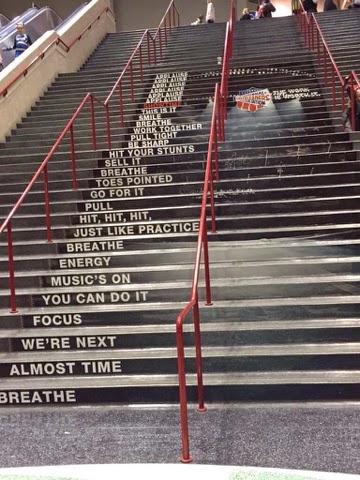 APPLAUSE
APPLAUSE
APPLAUSE
APPLAUSE
APPLAUSE
THIS IS IT
SMILE
BREATHE
WORK TOGETHER
PULL TIGHT
BE SHARP
HIT YOUR STUNTS
SELL IT
BREATHE
TOES POINTED
GO FOR IT
PULL
HIT, HIT, HIT,
JUST LIKE PRACTICE
BREATHE
ENERGY
MUSIC'S ON
YOU CAN DO IT
FOCUS
WE'RE NEXT
ALMOST TIME
BREATHE
THE WORK
IS WORTH IT.